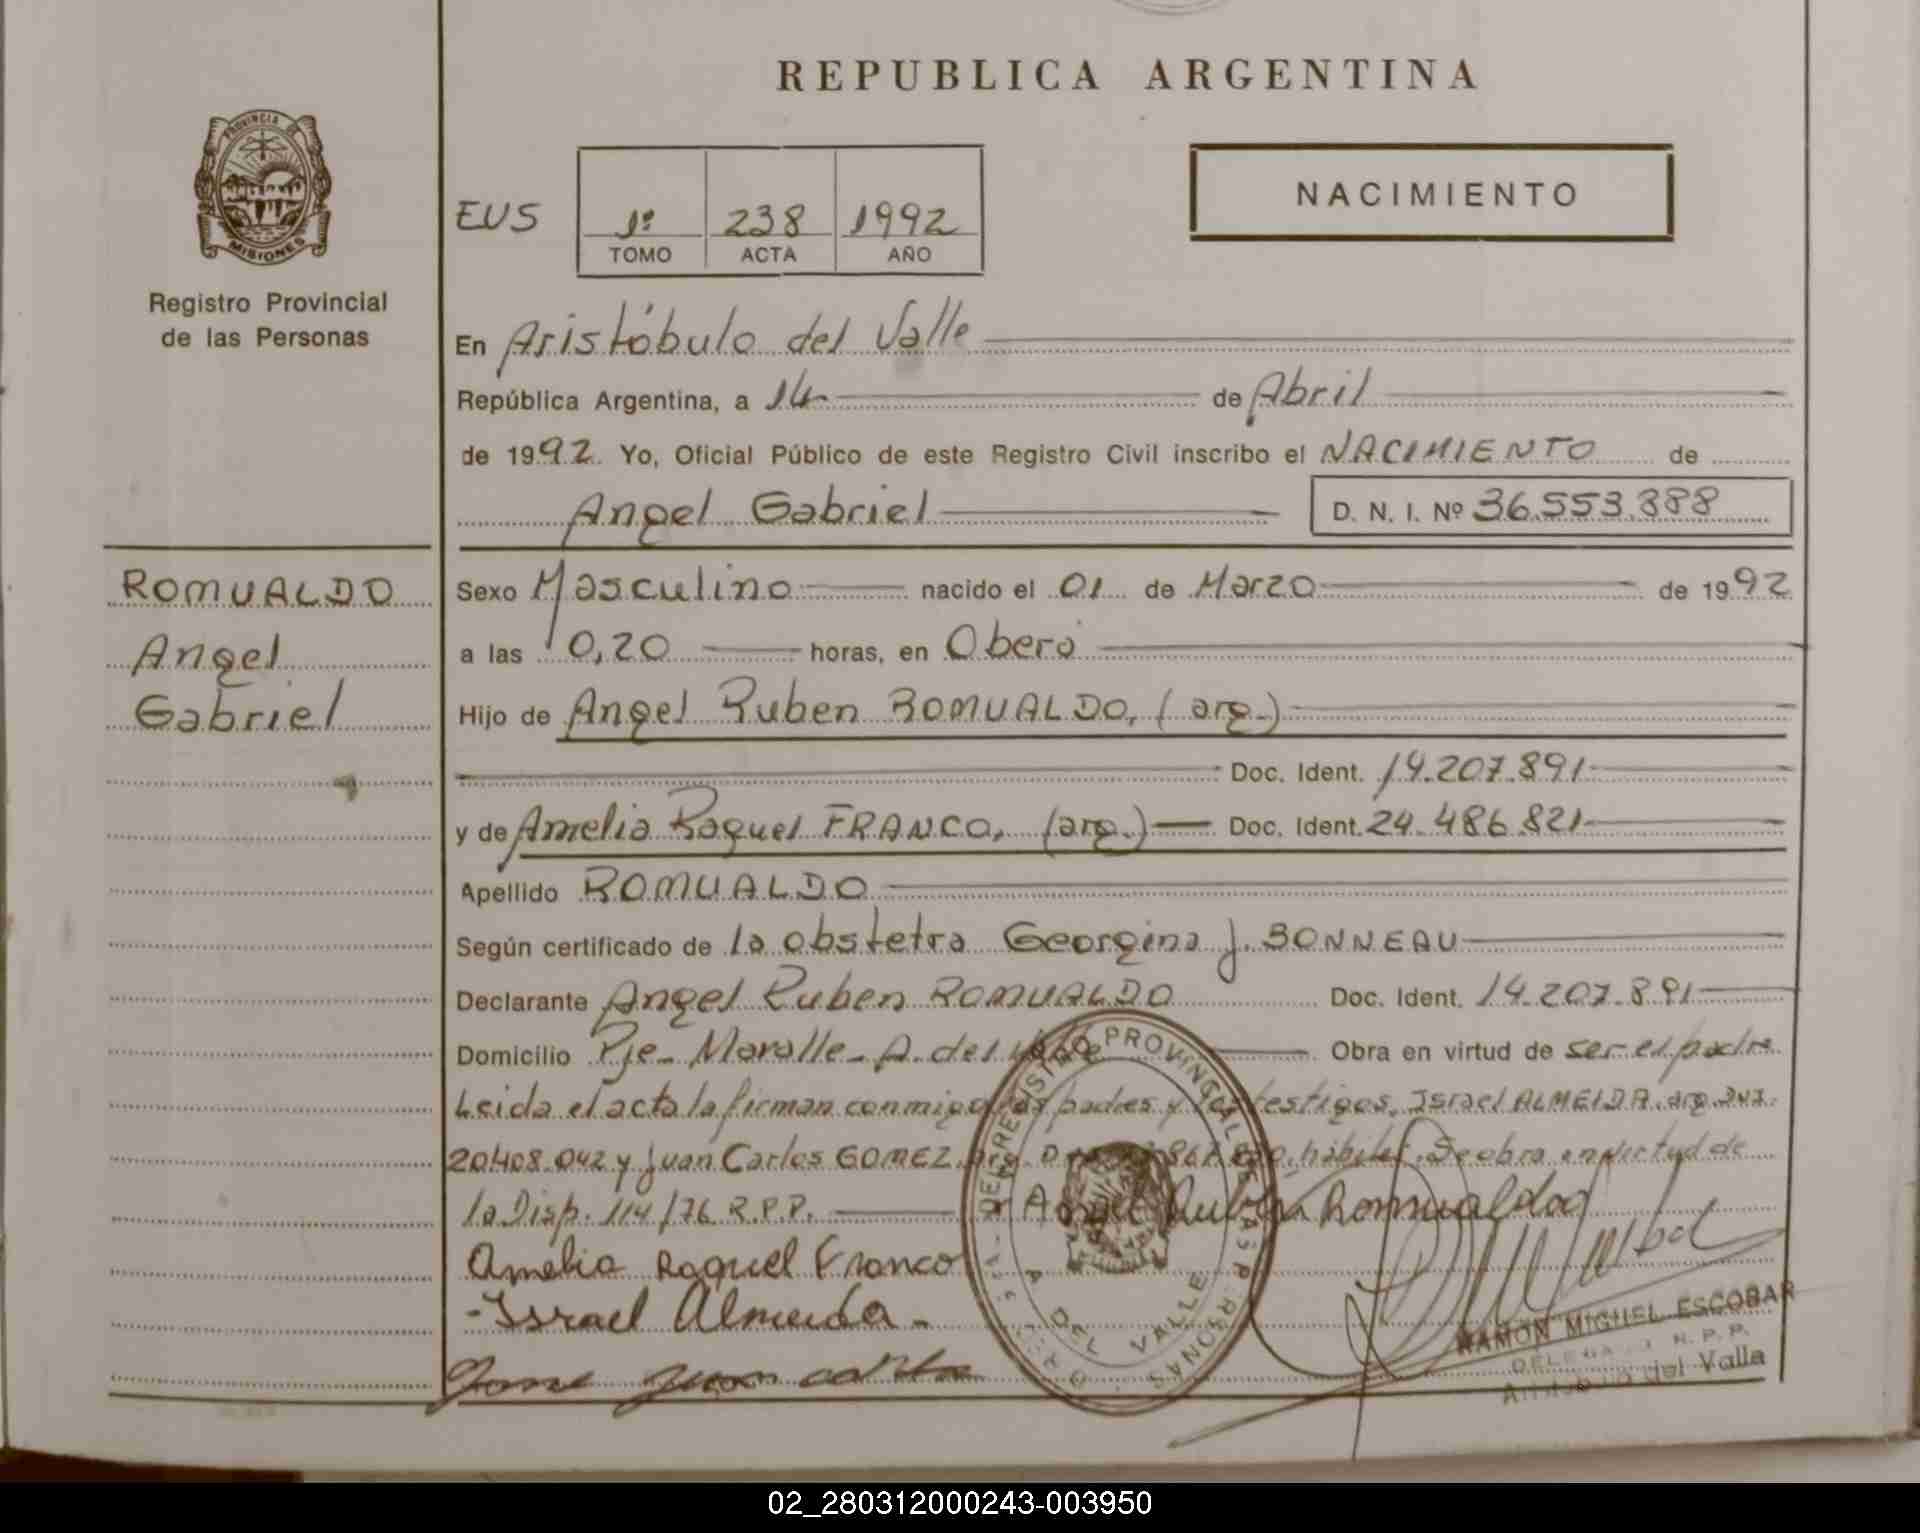 REPUBLICA ARGENTINA
PROVINCIA DE
MISIONES
Registro Provincial
de las Personas
EUS
1º 238 1992
TOMO ACTA AÑO
NACIMIENTO
En Aristóbulo del Valle
República Argentina, a 14 de Abril
de 1992 Yo, Oficial Público de este Registro Civil inscribo el NACIMIENTO de
Angel Gabriel D. N. I. Nº 36.553.388
ROMUALDO
Angel
Gabriel
Sexo Masculino nacido el 01 de Marzo de 1992
a las 0,20 horas, en Oberá
Hijo de Angel Ruben ROMUALDO, (arg.)
Doc. Ident. 14.207.891
y de Amelia Raquel FRANCO, (arg.) Doc. Ident. 24.486.821
Apellido ROMUALDO
Según certificado de la obstetra Georgina J. BONNEAU
Declarante Angel Ruben ROMUALDO Doc. Ident. 14.207.891
Domicilio Pje. Maralle - A. del Valle Obra en virtud de ser el padre
Leida el acta la firman conmigo los padres y los testigos, Israel ALMEIDA, arg. DNI.
20.408.042 y Juan Carlos GOMEZ, arg. hábiles. Se obra en virtud de
la Disp. 114/76 R.P.P.
Angel Ruben Romualdo
Amelia Raquel Franco
- Israel Almeida -
REGISTRO PROVINCIAL DE LAS PERSONAS
DEL VALLE
RAMON MIGUEL ESCOBAR
R. P. P.
del Valle
02_280312000243-003950